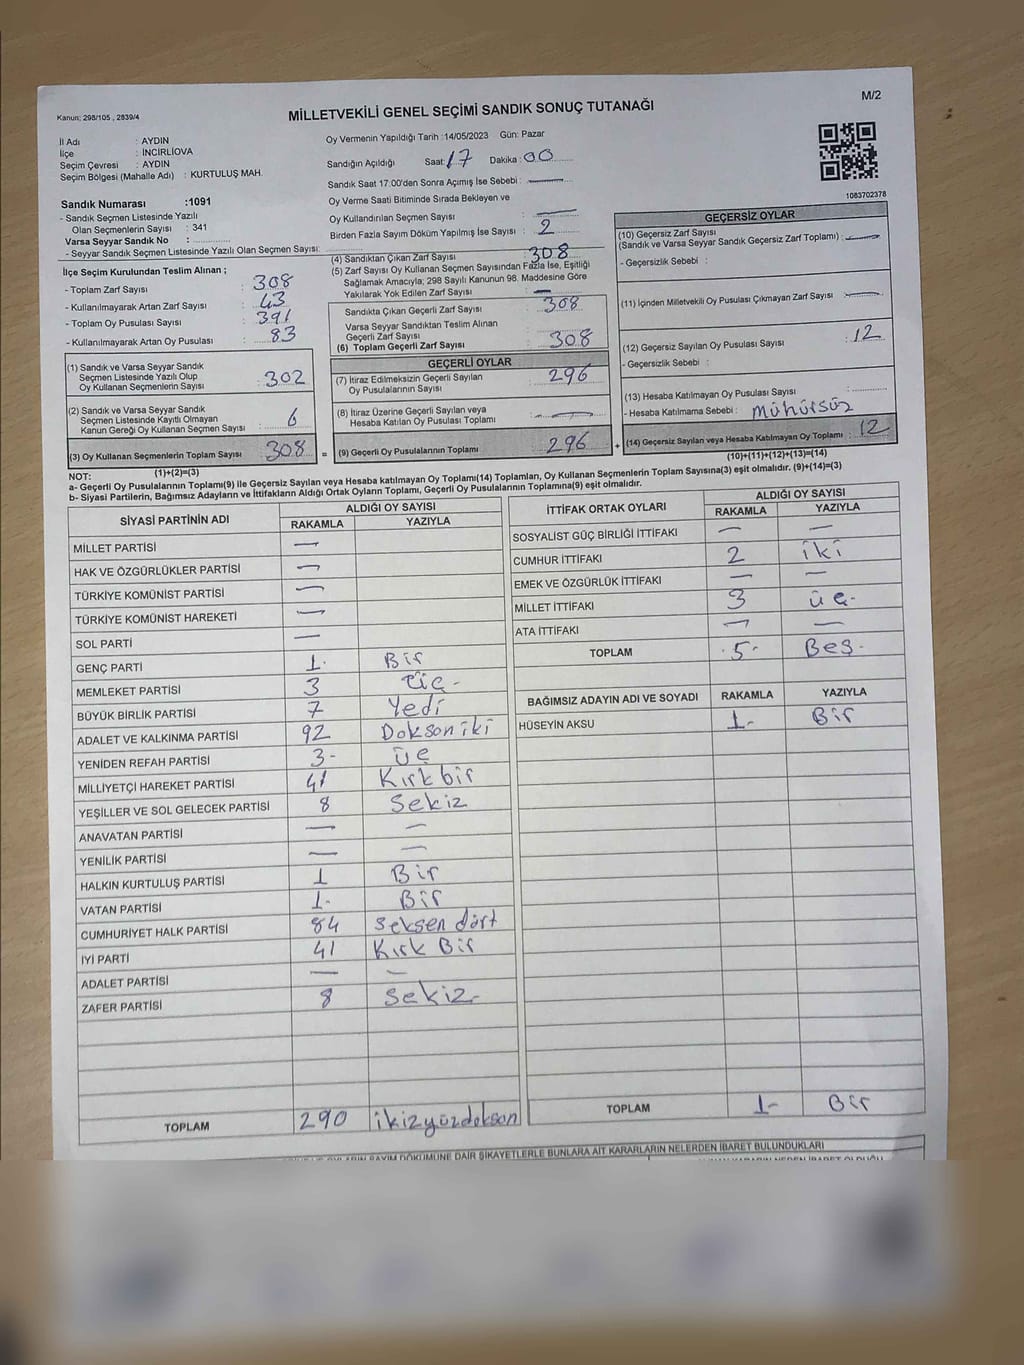 Kanun; 298/105 , 2839/4
MİLLETVEKİLİ GENEL SEÇİMİ SANDIK SONUÇ TUTANAĞI
M/2
İl Adı : AYDIN
İlçe : İNCİRLİOVA
Seçim Çevresi : AYDIN
Seçim Bölgesi (Mahalle Adı) : KURTULUŞ MAH.
Sandık Numarası :1091
- Sandık Seçmen Listesinde Yazılı
Olan Seçmenlerin Sayısı : 341
Varsa Seyyar Sandık No :
- Seyyar Sandık Seçmen Listesinde Yazılı Olan Seçmen Sayısı:
Oy Vermenin Yapıldığı Tarih :14/05/2023 Gün: Pazar
Sandığın Açıldığı Saat: 17 Dakika: 00
Sandık Saat 17:00'den Sonra Açımış İse Sebebi : —
Oy Verme Saati Bitiminde Sırada Bekleyen ve
Oy Kullandırılan Seçmen Sayısı : —
Birden Fazla Sayım Döküm Yapılmış İse Sayısı : 2
1083702378
İlçe Seçim Kurulundan Teslim Alınan ;
- Toplam Zarf Sayısı : 308
- Kullanılmayarak Artan Zarf Sayısı : 43
- Toplam Oy Pusulası Sayısı : 391
- Kullanılmayarak Artan Oy Pusulası : 83
(1) Sandık ve Varsa Seyyar Sandık
Seçmen Listesinde Yazılı Olup
Oy Kullanan Seçmenlerin Sayısı : 302
(2) Sandık ve Varsa Seyyar Sandık
Seçmen Listesinde Kayıtlı Olmayan
Kanun Gereği Oy Kullanan Seçmen Sayısı : 6
(3) Oy Kullanan Seçmenlerin Toplam Sayısı : 308
(1)+(2)=(3)
(4) Sandıktan Çıkan Zarf Sayısı : 308
(5) Zarf Sayısı Oy Kullanan Seçmen Sayısından Fazla İse, Eşitliği
Sağlamak Amacıyla; 298 Sayılı Kanunun 98. Maddesine Göre
Yakılarak Yok Edilen Zarf Sayısı : —
Sandıkta Çıkan Geçerli Zarf Sayısı : 308
Varsa Seyyar Sandıktan Teslim Alınan
Geçerli Zarf Sayısı
(6) Toplam Geçerli Zarf Sayısı : 308
GEÇERLİ OYLAR
(7) İtiraz Edilmeksizin Geçerli Sayılan
Oy Pusulalarının Sayısı : 296
(8) İtiraz Üzerine Geçerli Sayılan veya
Hesaba Katılan Oy Pusulası Toplamı : —
= (9) Geçerli Oy Pusulalarının Toplamı : 296
GEÇERSİZ OYLAR
(10) Geçersiz Zarf Sayısı
(Sandık ve Varsa Seyyar Sandık Geçersiz Zarf Toplamı) : —
- Geçersizlik Sebebi :
(11) İçinden Milletvekili Oy Pusulası Çıkmayan Zarf Sayısı : —
(12) Geçersiz Sayılan Oy Pusulası Sayısı : 12
- Geçersizlik Sebebi :
(13) Hesaba Katılmayan Oy Pusulası Sayısı :
- Hesaba Katılmama Sebebi : mühürsüz
+ (14) Geçersiz Sayılan veya Hesaba Katılmayan Oy Toplamı : 12
(10)+(11)+(12)+(13)=(14)
NOT:
a- Geçerli Oy Pusulalarının Toplamı(9) ile Geçersiz Sayılan veya Hesaba katılmayan Oy Toplamı(14) Toplamları, Oy Kullanan Seçmenlerin Toplam Sayısına(3) eşit olmalıdır. (9)+(14)=(3)
b- Siyasi Partilerin, Bağımsız Adayların ve İttifakların Aldığı Ortak Oyların Toplamı, Geçerli Oy Pusulalarının Toplamına(9) eşit olmalıdır.
SİYASİ PARTİNİN ADI ALDIĞI OY SAYISI
RAKAMLA YAZIYLA
MİLLET PARTİSİ —
HAK VE ÖZGÜRLÜKLER PARTİSİ —
TÜRKİYE KOMÜNİST PARTİSİ —
TÜRKİYE KOMÜNİST HAREKETİ —
SOL PARTİ —
GENÇ PARTİ 1- Bir
MEMLEKET PARTİSİ 3 Üç -
BÜYÜK BİRLİK PARTİSİ 7 Yedi
ADALET VE KALKINMA PARTİSİ 92 Dokson iki
YENİDEN REFAH PARTİSİ 3- üç
MİLLİYETÇİ HAREKET PARTİSİ 41 Kırk bir
YEŞİLLER VE SOL GELECEK PARTİSİ 8 Sekiz
ANAVATAN PARTİSİ — —
YENİLİK PARTİSİ — —
HALKIN KURTULUŞ PARTİSİ 1 Bir
VATAN PARTİSİ 1- Bir
CUMHURİYET HALK PARTİSİ 84 Seksen dört
İYİ PARTİ 41 Kırk Bir
ADALET PARTİSİ — —
ZAFER PARTİSİ 8 Sekiz-
TOPLAM 290 ikizyüzdokson
İTTİFAK ORTAK OYLARI ALDIĞI OY SAYISI
RAKAMLA YAZIYLA
SOSYALİST GÜÇ BİRLİĞİ İTTİFAKI — —
CUMHUR İTTİFAKI 2 iki
EMEK VE ÖZGÜRLÜK İTTİFAKI — —
MİLLET İTTİFAKI 3 üç-
ATA İTTİFAKI — —
TOPLAM -5- Beş-
BAĞIMSIZ ADAYIN ADI VE SOYADI RAKAMLA YAZIYLA
HÜSEYİN AKSU 1- Bir
TOPLAM 1- Bir
OYLARIN SAYIM DÖKÜMÜNE DAİR ŞİKAYETLERLE BUNLARA AİT KARARLARIN NELERDEN İBARET BULUNDUKLARI